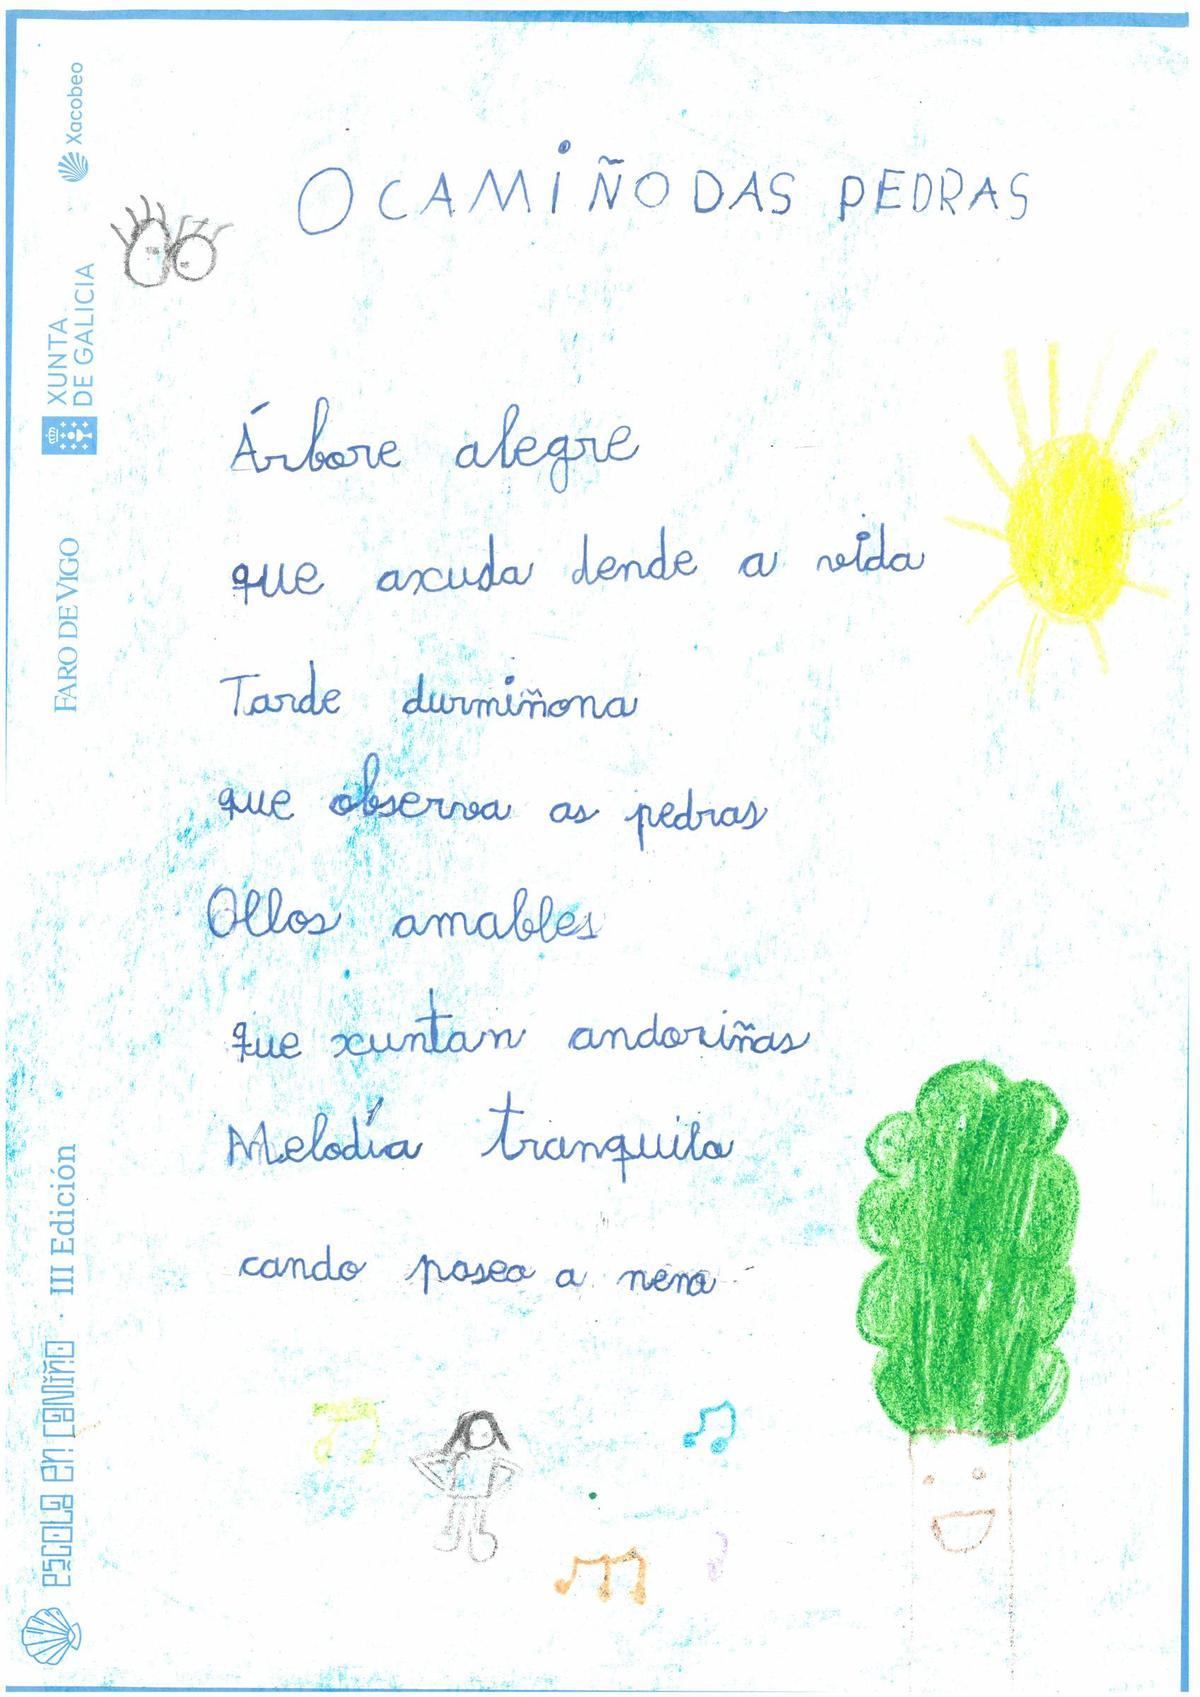 O CAMIÑO DAS PEDRAS
Árbore alegre
que axuda dende a vida
Tarde durmiñona
que observa as pedras
Ollos amables
que xuntan andoriñas
Melodía tranquila
cando pasea a nena
Xacobeo
XUNTA
DE GALICIA
FARO DE VIGO
ESCOLA EN CAMIÑO · III Edición